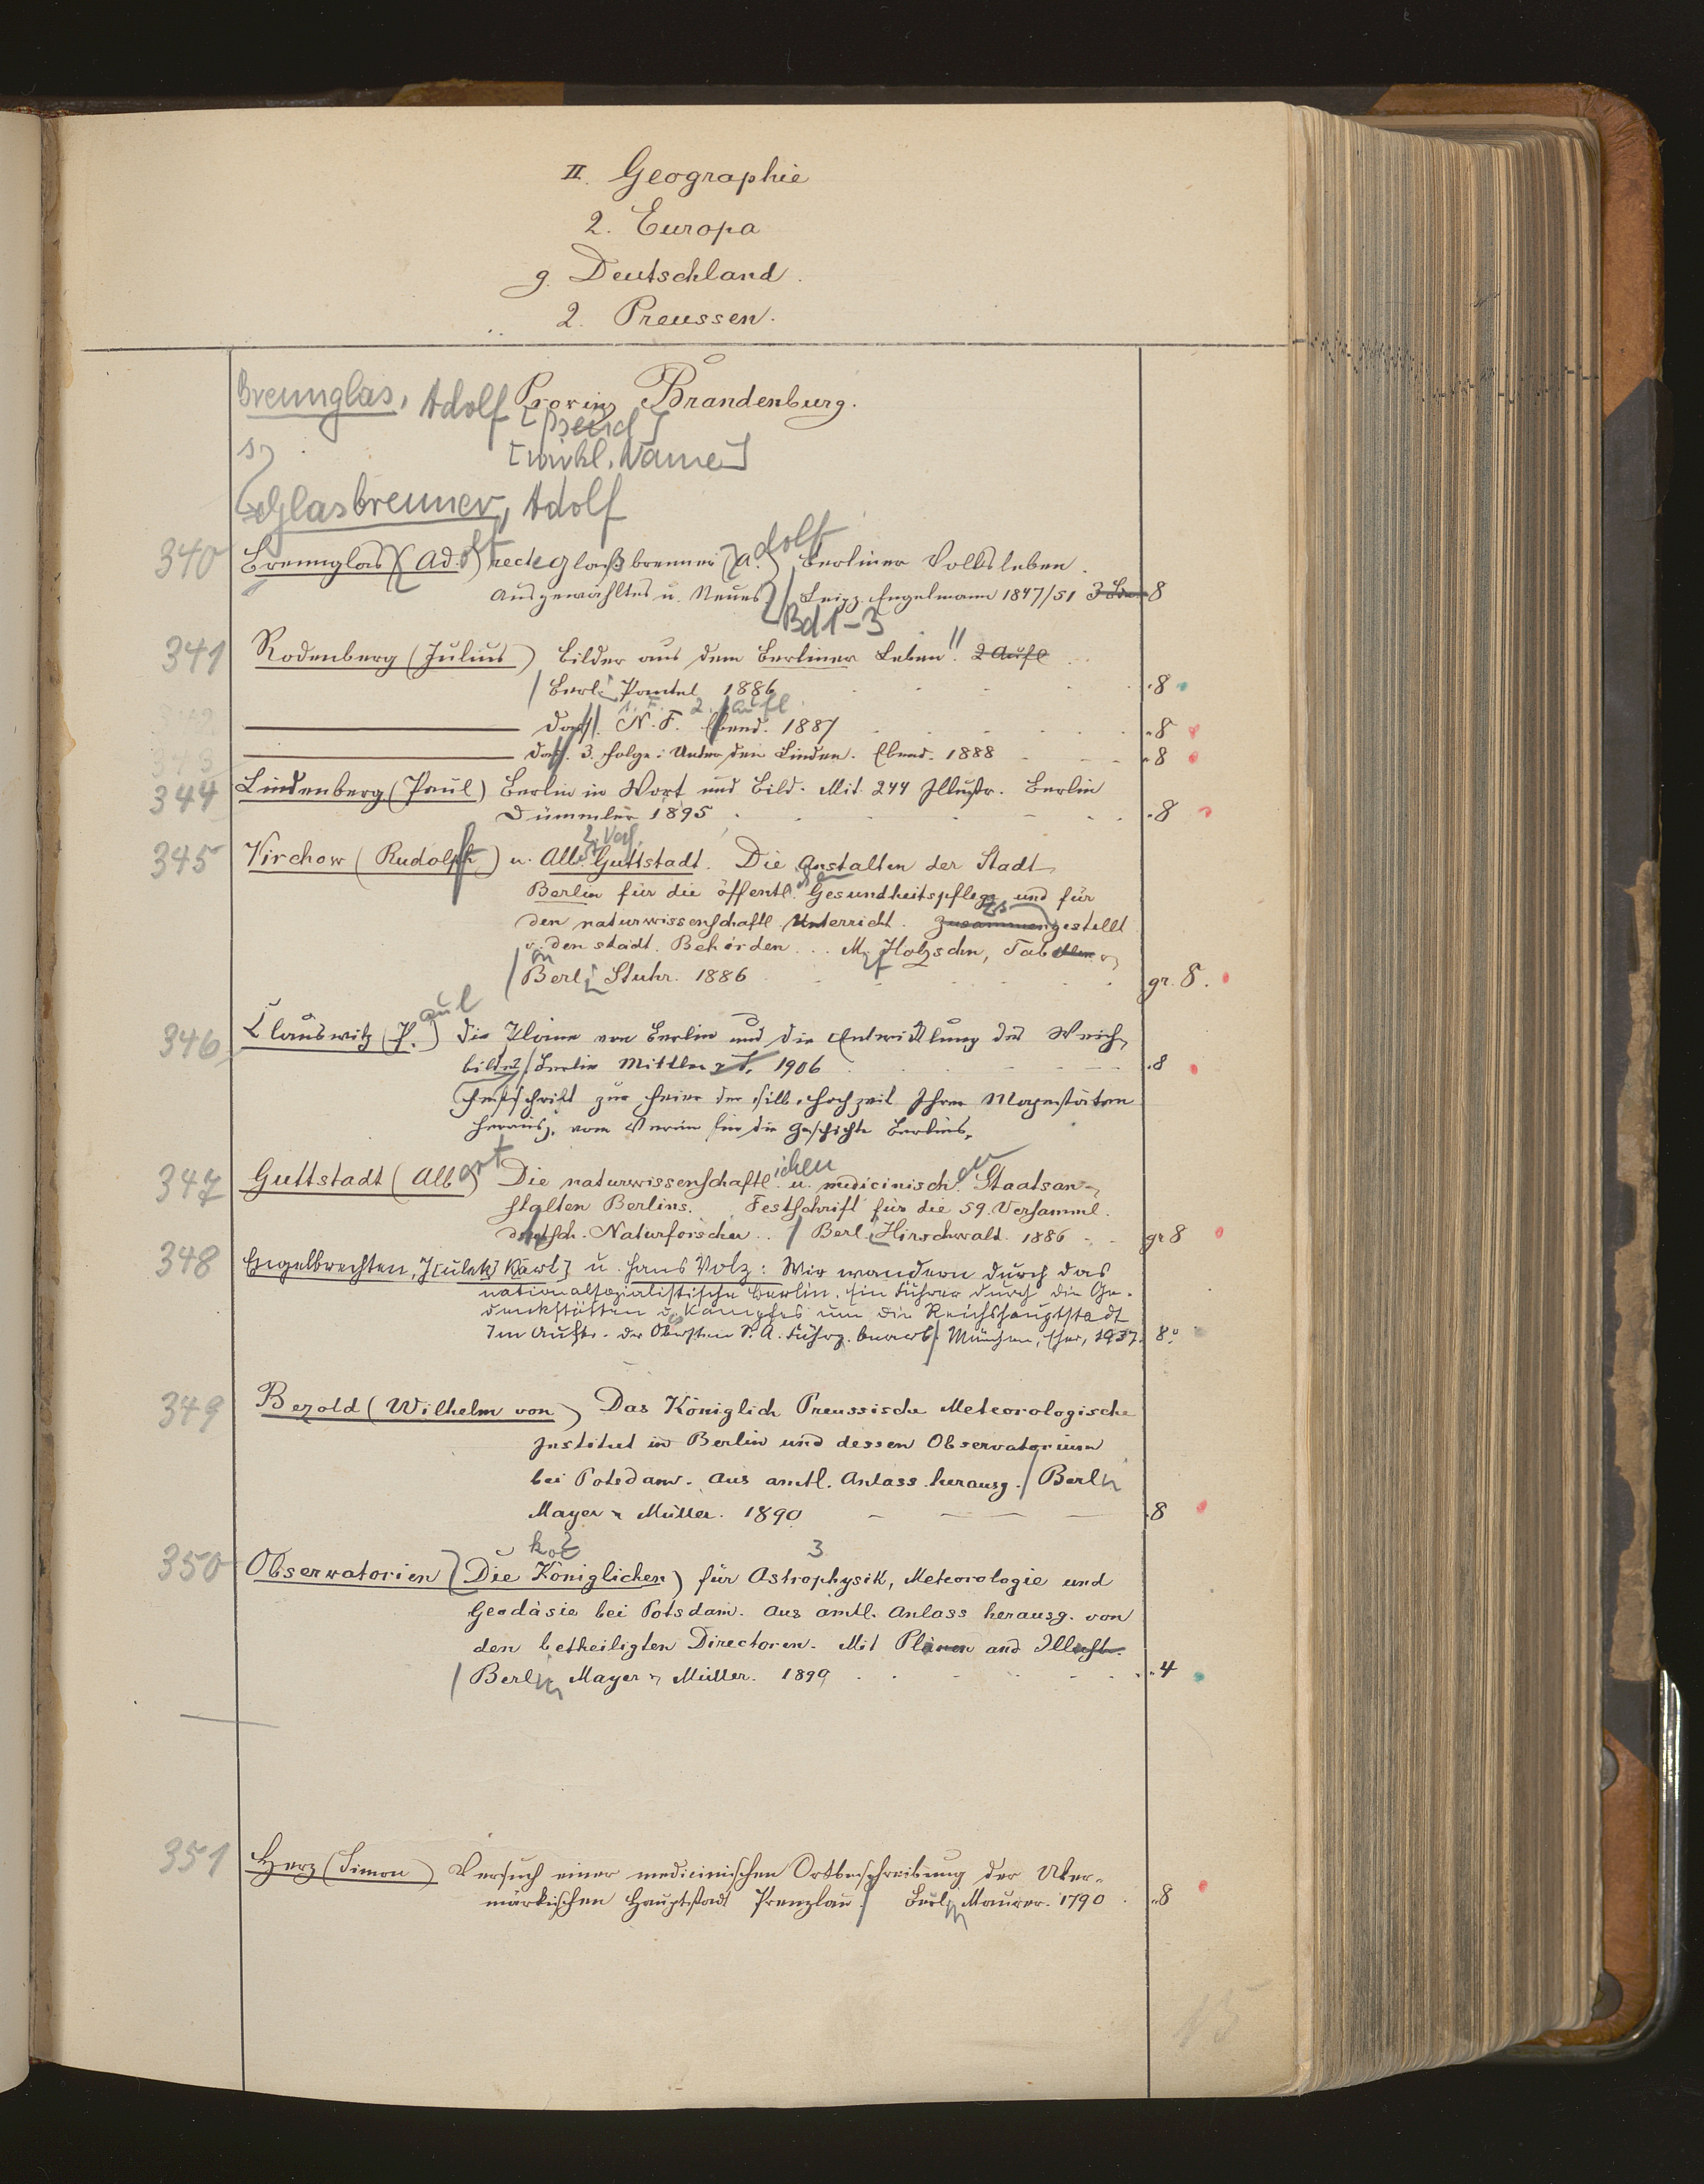 II. Geographie
2. Europa
g. Deutschland.
2. Preussen.
Provinz Brandenburg.
Brennglas, Adolf [Pseud]
s.
[wirkl. Name]
Glasbrenner, Adolf
340 Brennglas (Adolf) recte Glaßbrenner (Adolf) Berliner Volksleben.
Ausgewähltes u. Neues / Leipz. Engelmann 1847/51 3 Bde 8
Bd 1-3
341 Rodenberg (Julius) Bilder aus dem Berliner Leben. 2 Aufl
/ Berl. Paetel 1886 8
1. F. 2. Aufl.
342 Dass. N. F. Ebend. 1887 8
343 Dass. 3. Folge: Unter den Linden. Ebend. 1888 8
344 Lindenberg (Paul) Berlin in Wort und Bild. Mit 244 Illustr. Berlin
Dümmler 1895 8
2. Verf.
345 Virchow (Rudolph) u. Alb. Guttstadt. Die Anstalten der Stadt
Berlin für die öffentl. Gesundheitspflege und für
den naturwissenschaftl. Unterricht. Zusammengestellt
v. den städt. Behörden... M. Holzschn, Tabellen
/ Berl. Stuhr. 1886 gr. 8.
346 Clauswitz (Paul) Die Pläne von Berlin und die Entwicklung des Weich-
bildes / Berlin Mittler & S. 1906 8
Festschrift zur Feier der silb. Hochzeit Ihrer Majestäten
herausg. vom Verein für die Geschichte Berlins.
347 Guttstadt (Albert) Die naturwissenschaftlichen u. medicinischen Staatsan-
stalten Berlins. Festschrift für die 59. Versamml.
deutsch. Naturforscher.. / Berl. Hirschwald. 1886 gr 8
348 Engelbrechten, J[ulek] Karl] u. Hans Volz: Wir wandern durch das
nationalsozialistische Berlin. Ein Führer durch die Ge-
denkstätten d. Kampfes um die Reichshauptstadt
Im Auftr. der Obersten S. A. Führg. bearb / München, Eher, 1937. 8°
349 Bezold (Wilhelm von) Das Königlich Preussische Meteorologische
Institut in Berlin und dessen Observatorium
bei Potsdam. Aus amtl. Anlass herausg. / Berlin
Mayer & Müller. 1890 8
350 Observatorien (Die Königlichen) für Astrophysik, Meteorologie und
Geodäsie bei Potsdam. Aus amtl. Anlass herausg. von
den betheiligten Directoren. Mit Plänen und Illustr.
/ Berlin Mayer & Müller. 1890 4
351 Herz (Simon) Versuch einer medicinischen Ortbeschreibung der Uker-
märkischen Hauptstadt Prenzlau / Berlin Maurer. 1790 8
15